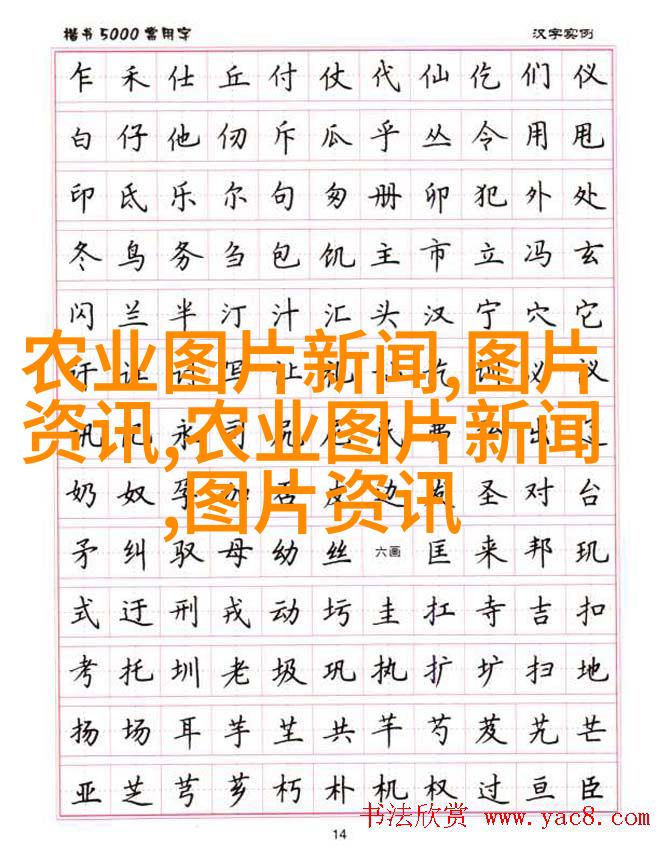 楷书5000常用字 汉字实例
乍禾仕丘付仗代仙仡们仪
白仔他仞斥瓜乎丛令用甩
印氐乐尔句匆册卯犯外处
冬鸟务刍包饥主市立冯玄
闪兰半汀汁汇头汉宁穴它
农业图片新闻,图片
资讯,农业图片新闻
,图片资讯
奶奴孕加召皮边发圣对台
矛纠驭母幼丝 六画 匡来邦玑
式迂刑戎动圬圭扛寺吉扣
考托圳老圾巩执扩圹扫地
扬场耳芋芏共芊芍芨艽芒
亚芝芎芗朽朴机权过亘臣
书法欣赏 www.yac8.com
14